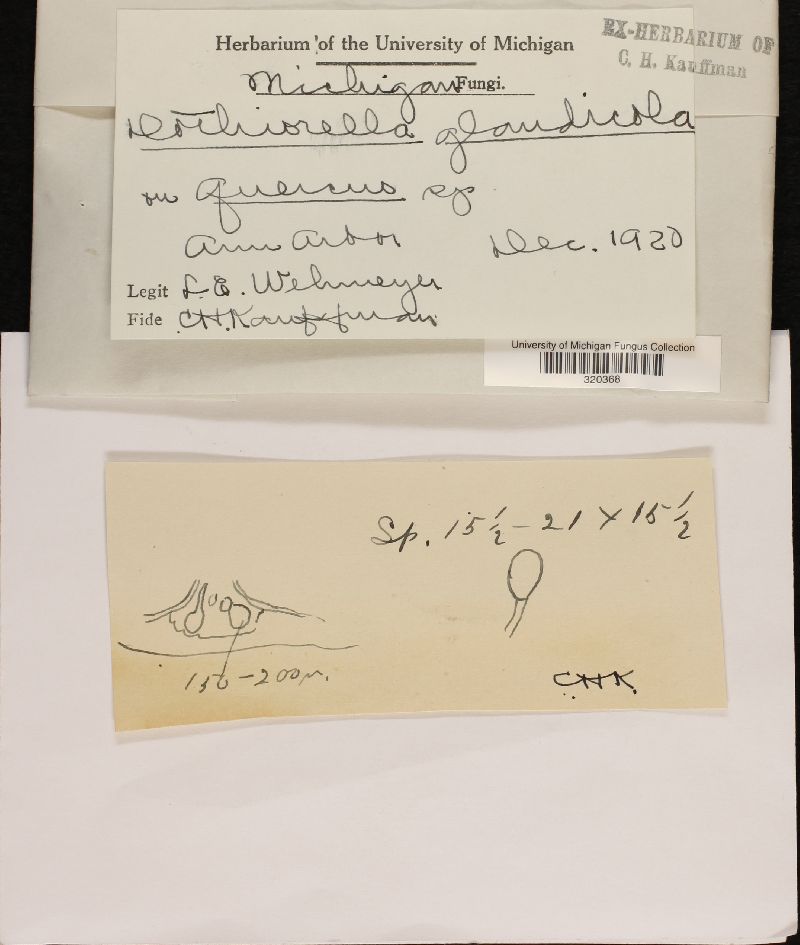 EX-HERBARIUM OF
C. H. Kauffman
Herbarium of the University of Michigan
Michigan Fungi.
Dothiorella glandicola
on Quercus sp
Ann Arbor Dec. 1920
Legit L.E. Wehmeyer
Fide C.H. Kauffman
University of Michigan Fungus Collection
320366
Sp. 15 1/2 - 21 x 15 1/2
150-200µ.
CHK.